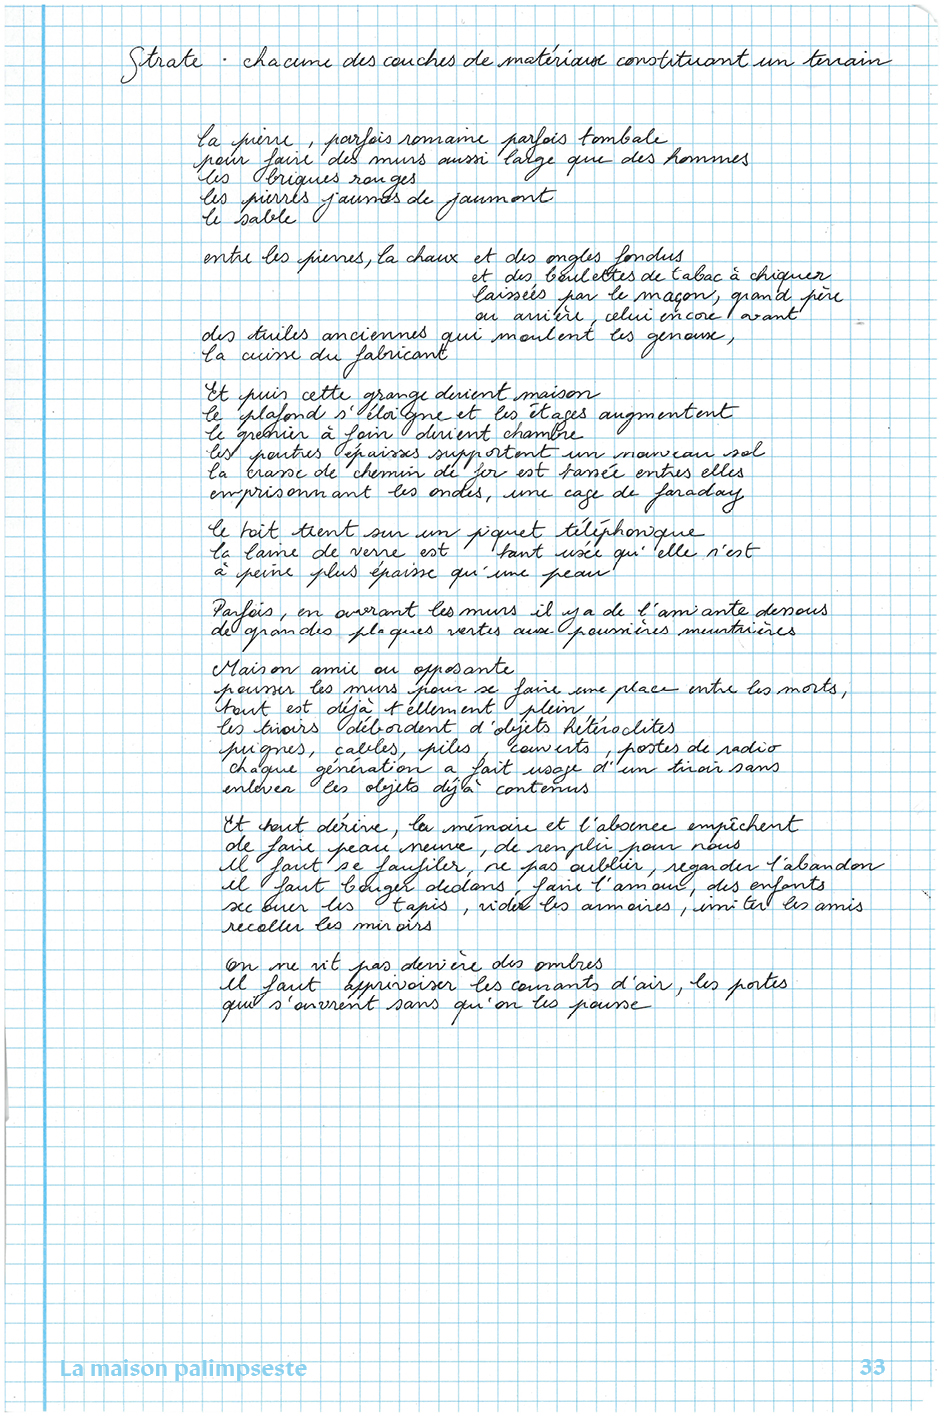 Strate . chacune des couches de matériaux constituant un terrain
la pierre, parfois romaine parfois tombale
pour faire des murs aussi large que des hommes
les briques rouges
les pierres jaunes de jaumont
le sable
entre les pierres, la chaux et des ongles fondus
et des boulettes de tabac à chiquer
laissées par le maçon, grand père
ou arrière, celui encore avant
des tuiles anciennes qui moulent les genoux,
la cuisse du fabricant
Et puis cette grange devient maison
le plafond s'éloigne et les étages augmentent
le grenier à foin devient chambre
les poutres épaisses supportent un nouveau sol
la crasse de chemin de fer est tassée entres elles
emprisonnant les ondes, une cage de faraday
le toit tient sur un piquet téléphonique
la laine de verre est tant usée qu'elle n'est
à peine plus épaisse qu'une peau
Parfois, en ouvrant les murs il y a de l'amiante dessous
de grandes plaques vertes aux poussières meurtrières
Maison amie ou opposante
pousser les murs pour se faire une place entre les morts,
tout est déjà tellement plein
les tiroirs débordent d'objets hétéroclites
peignes, cables, piles, couverts, postes de radio
chaque génération a fait usage d'un tiroir sans
enlever les objets déjà contenus
Et tout dérive, la mémoire et l'absence empêchent
de faire peau neuve, de remplir pour nous
Il faut se faufiler, ne pas oublier, regarder l'abandon
il faut bouger dedans, faire l'amour, des enfants
secouer les tapis, vider les armoires, inviter les amis
recoller les miroirs
On ne vit pas derrière des ombres
Il faut apprivoiser les courants d'air, les portes
qui s'ouvrent sans qu'on les pousse
La maison palimpseste 33